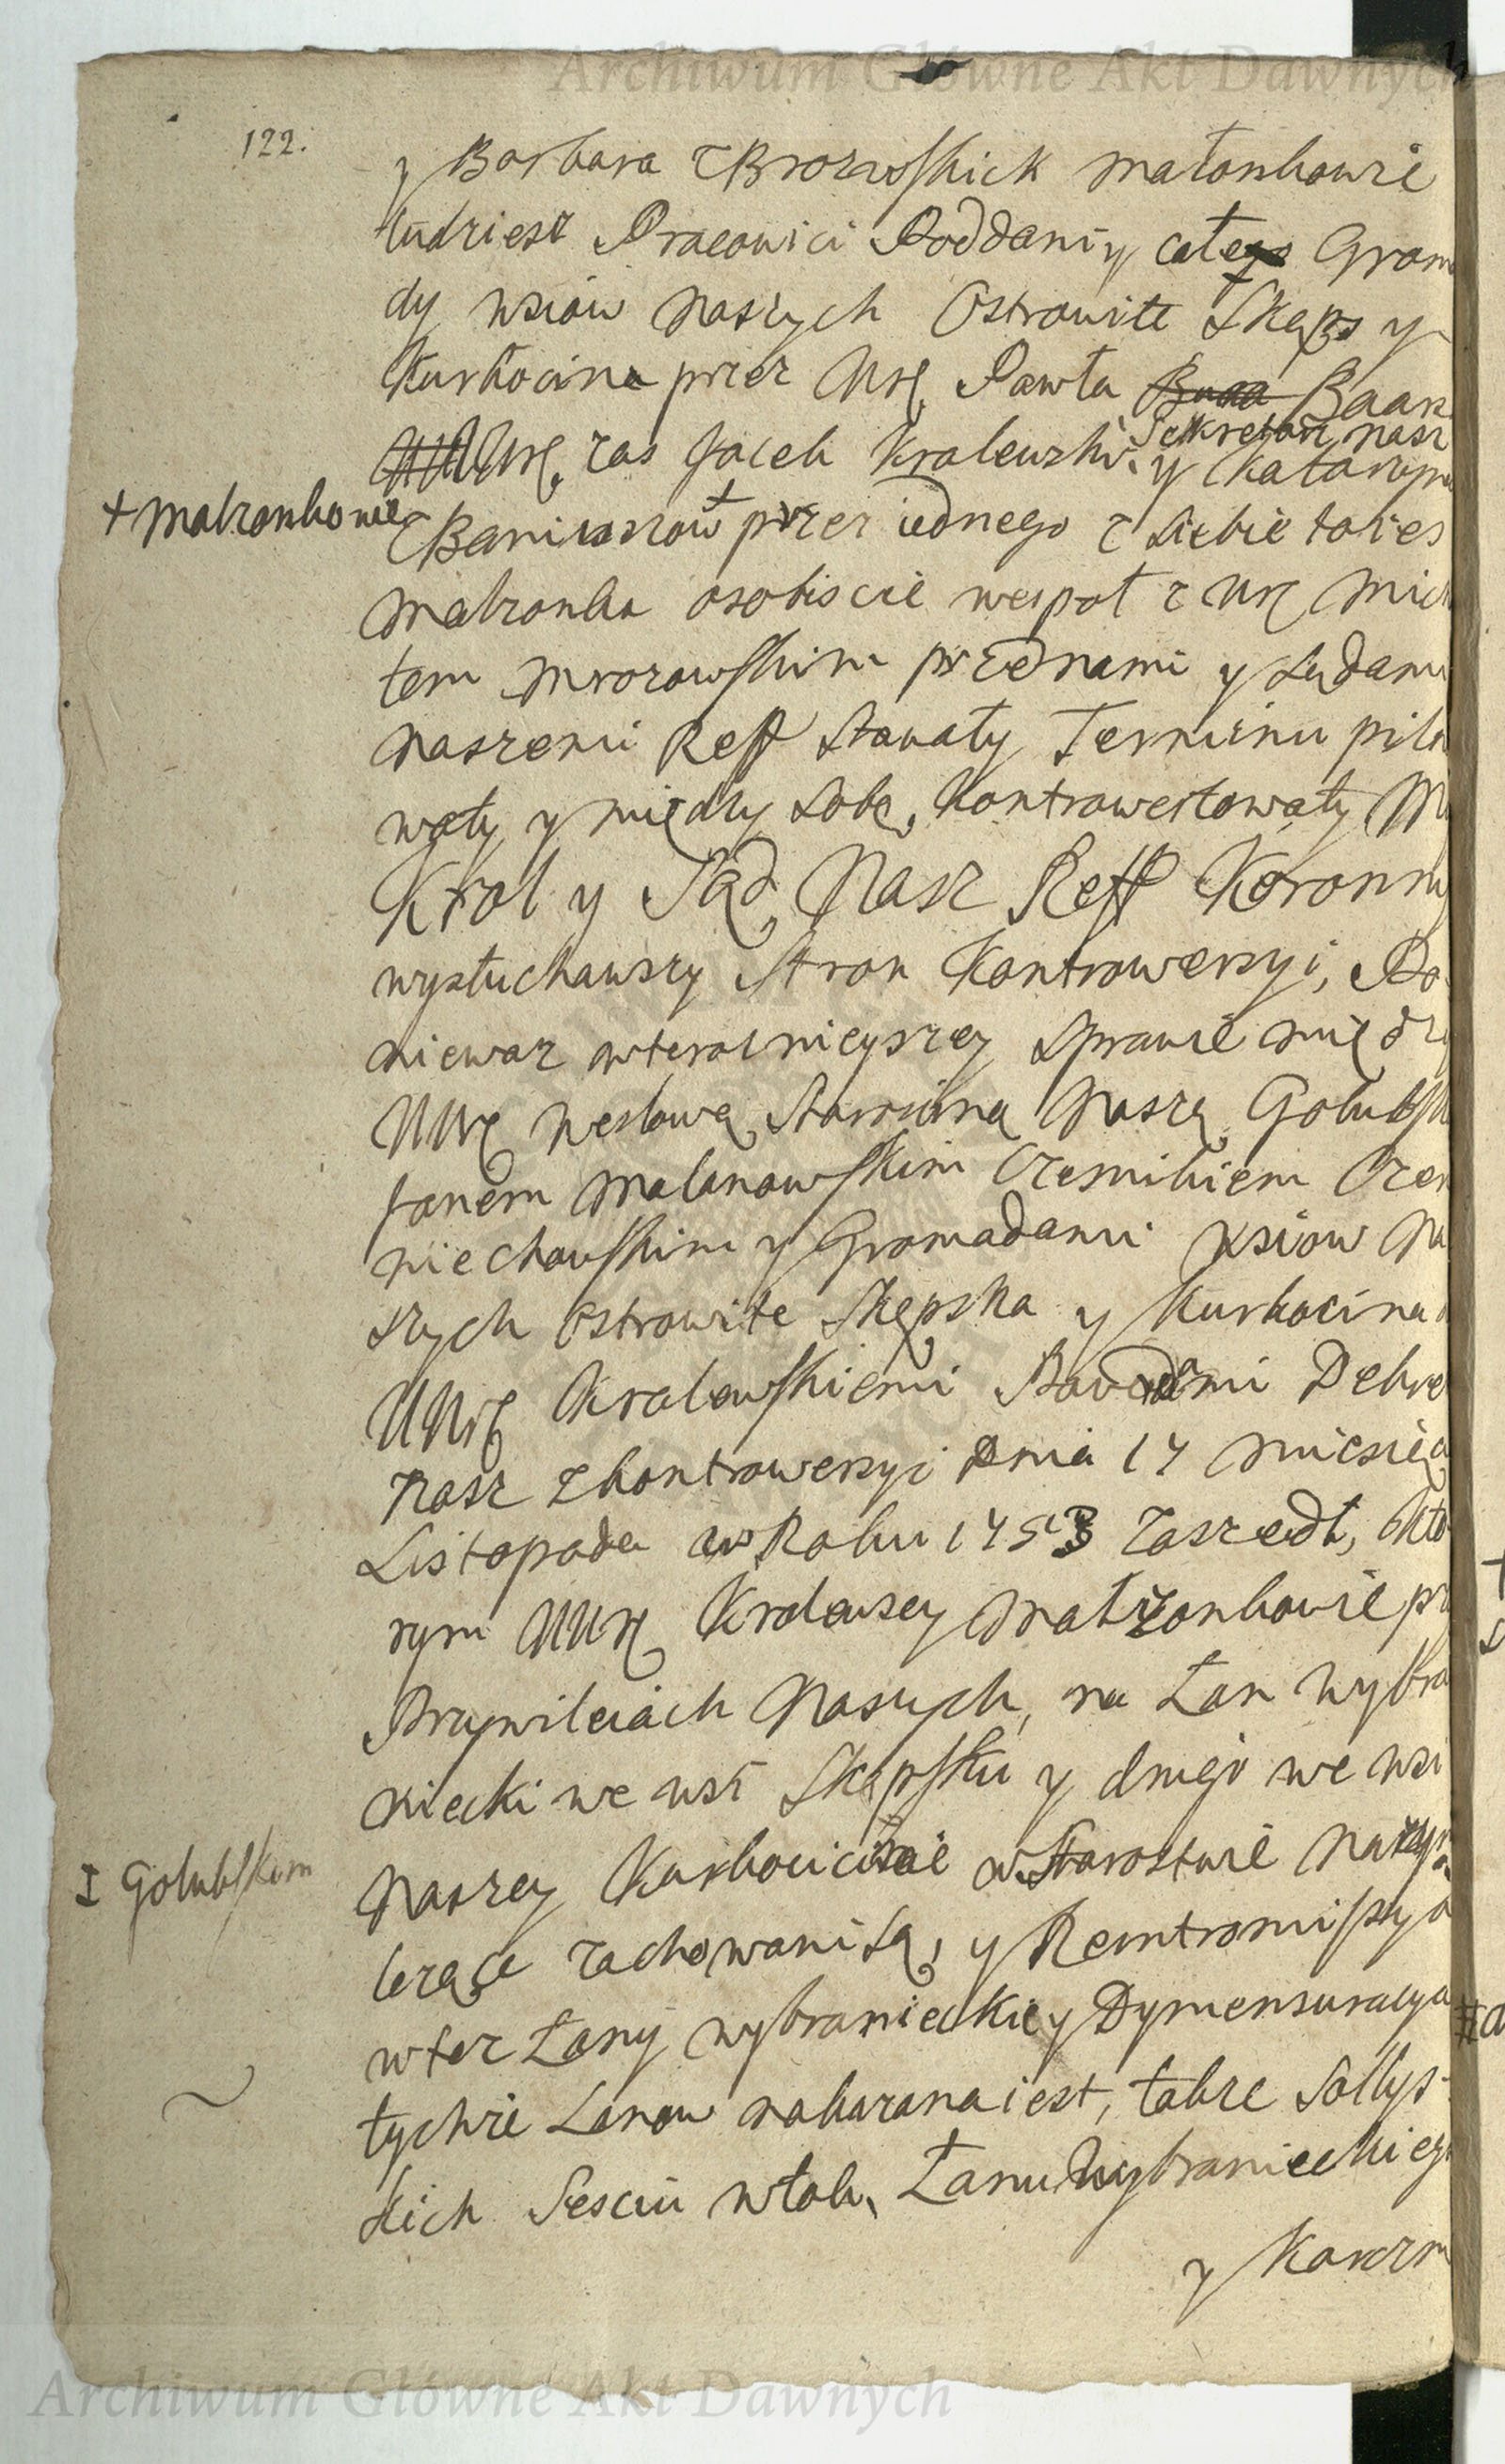 Archiwum Główne Akt Dawnych
122.
y Barbara z Brozowskich małonkowie
tudziesz Pracowici Poddani y całego Grom
dy wsiow naszych Ostrowite Skęps y
Kurkocina przez Urę Pawła Baar
Urę zas Jacek Kralewski Sekretarz nasz y Katarzyna
+ malzonkowie
z Baniu przez iednego z siebie toies
Malzonka osobiscie wespoł z Urę Mich
tem Mrozowskim przed nami y Sądami
naszemi Reff stawały Terminu pilno
wały y między sobą kontrowertowały My
Krol y Sąd Nasz Reff Koronny
wysłuchawszy Stron Kontrowersyi, Po
niewaz w teraznieyszey sprawie między
UUrę Weslową Starościną Naszą Golubsk
Janem Malanowskim Czesnikiem Czer
niechowskim y Gromadami wsiow Na
szych Ostrowite Skępska y Kurkocina
UUrę Kralewskiemi Dekre
Nasz z kontrowersyi Dnia 17 Miesiąca
Listopada w Roku 1753 zaszedł, kto
rym UUrę Kralewscy Matżonkowie pr
Przywileiach Naszych, na Łan Wybra
niecki we wsi Skępsku y drugi we wsi
Naszey Kurkocinie w Starostwie Naszym
I Golubskim
lezące zachowani są, y Reintromissya
w tez Łany wybranieckie y Dymensuracya
tychże Lanow nakazana iest, takze Soltys-
kich Sesciu włok, Łanu Wybranieckieg
y Karczm
Archiwum Główne Akt Dawnych